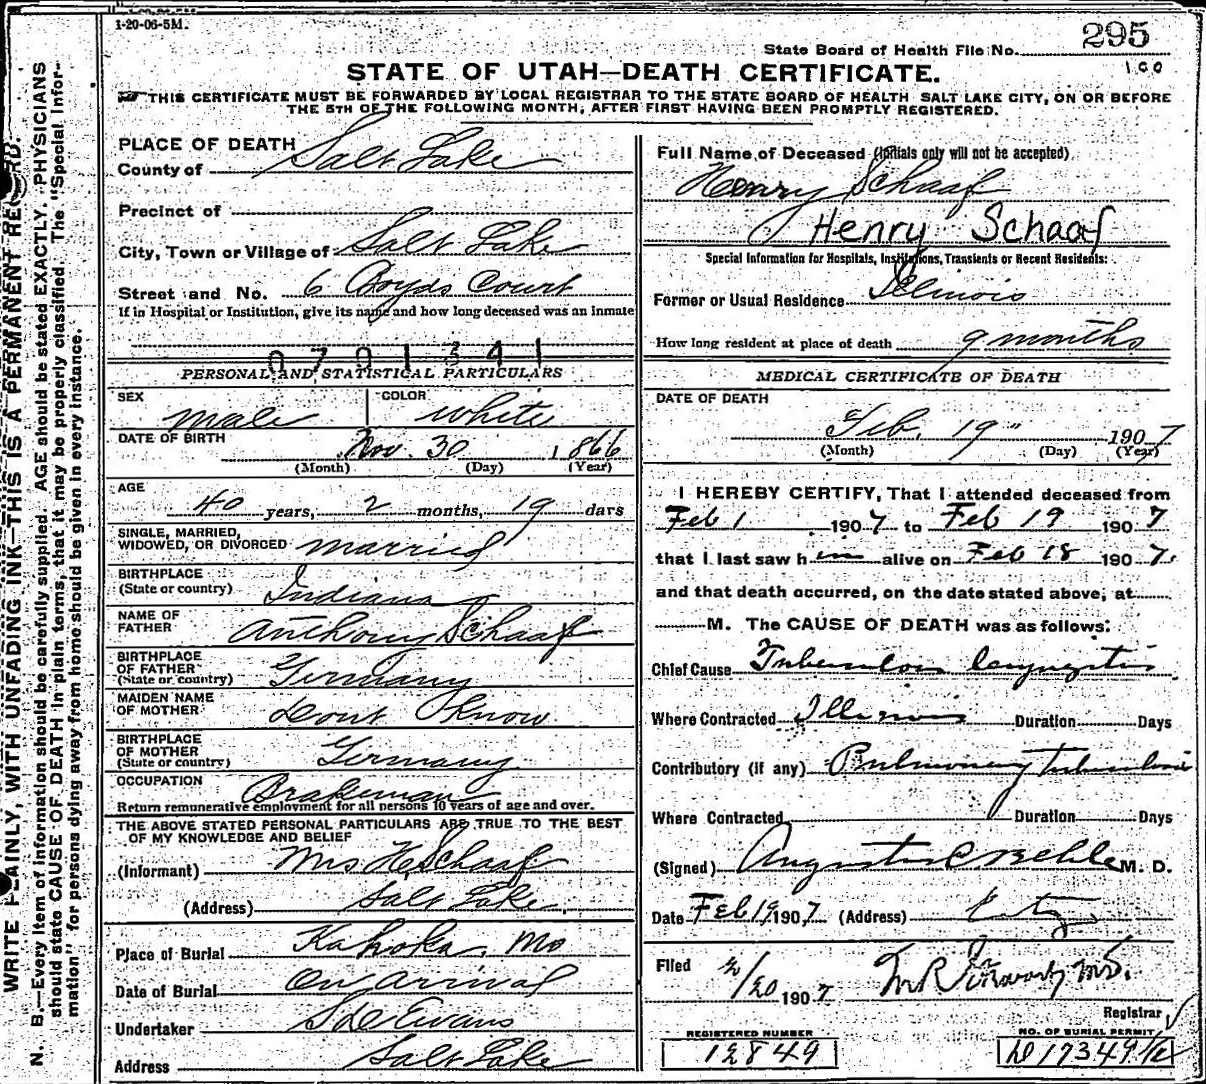 1-20-06-5M.
295
State Board of Health File No.
100
STATE OF UTAH—DEATH CERTIFICATE.
THIS CERTIFICATE MUST BE FORWARDED BY LOCAL REGISTRAR TO THE STATE BOARD OF HEALTH SALT LAKE CITY, ON OR BEFORE
THE 5TH OF THE FOLLOWING MONTH, AFTER FIRST HAVING BEEN PROMPTLY REGISTERED.
WRITE PLAINLY, WITH UNFADING INK—THIS IS A PERMANENT RECORD.
N. B.—Every item of information should be carefully supplied. AGE should be stated EXACTLY. PHYSICIANS
should state CAUSE OF DEATH in plain terms, that it may be properly classified. The "Special Infor-
mation" for persons dying away from home should be given in every instance.
PLACE OF DEATH
County of Salt Lake
Precinct of
City, Town or Village of Salt Lake
Street and No. 6 Boyds Court
If in Hospital or Institution, give its name and how long deceased was an inmate
0701341
PERSONAL AND STATISTICAL PARTICULARS
SEX male COLOR white
DATE OF BIRTH Nov. 30 1866
(Month) (Day) (Year)
AGE
40 years, 2 months, 19 days
SINGLE, MARRIED,
WIDOWED, OR DIVORCED married
BIRTHPLACE
(State or country) Indiana
NAME OF
FATHER Anthony Schaaf
BIRTHPLACE
OF FATHER
(State or country) Germany
MAIDEN NAME
OF MOTHER Dont Know
BIRTHPLACE
OF MOTHER
(State or country) Germany
OCCUPATION Brakeman
Return remunerative employment for all persons 10 years of age and over.
THE ABOVE STATED PERSONAL PARTICULARS ARE TRUE TO THE BEST
OF MY KNOWLEDGE AND BELIEF
(Informant) Mrs H Schaaf
(Address) Salt Lake
Place of Burial Kahoka, Mo
Date of Burial On Arrival
Undertaker S D Evans
Address Salt Lake
Full Name of Deceased (Initials only will not be accepted)
Henry Schaaf
Henry Schaaf
Special Information for Hospitals, Institutions, Transients or Recent Residents:
Former or Usual Residence Illinois
How long resident at place of death 9 months
MEDICAL CERTIFICATE OF DEATH
DATE OF DEATH
Feb. 19" 1907
(Month) (Day) (Year)
I HEREBY CERTIFY, That I attended deceased from
Feb 1 1907 to Feb 19 1907
that I last saw him alive on Feb 18 1907.
and that death occurred, on the date stated above, at
M. The CAUSE OF DEATH was as follows:
Chief Cause Tubercular laryngitis
Where Contracted Illinois Duration Days
Contributory (if any) Pulmonary Tuberculosis
Where Contracted Duration Days
(Signed) Augustus C Behle M. D.
Date Feb 19, 1907 (Address) City
Filed 2/20 1907 M.D.
Registrar
REGISTERED NUMBER
12849
NO. OF BURIAL PERMIT
D 17349